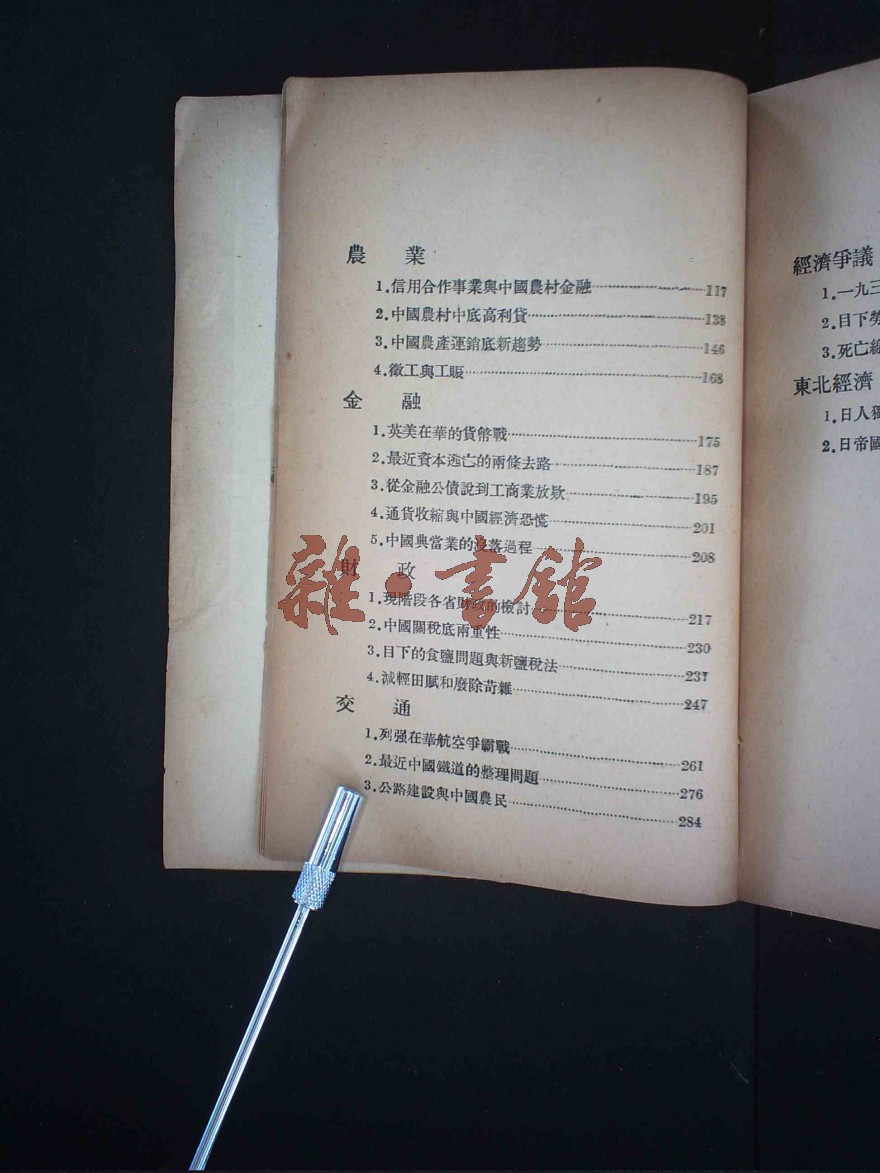 農 業
1.信用合作事業與中國農村金融……117
2.中國農村中底高利貸……138
3.中國農產運銷底新趨勢……146
4.徵工與工賑……168
金 融
1.英美在華的貨幣戰……175
2.最近資本逃亡的兩條去路……187
3.從金融公債說到工商業放欵……195
4.通貨收縮與中國經濟恐慌……201
5.中國典當業的沒落過程……208
財 政
1.現階段各省財政的檢討……217
2.中國關稅底兩重性……230
3.目下的食鹽問題與新鹽稅法……237
4.減輕田賦和廢除苛雜……247
交 通
1.列强在華航空爭霸戰……261
2.最近中國鐵道的整理問題……276
3.公路建設與中國農民……284
雜·書館
經濟爭議
1.一九三
2.目下勞
3.死亡線
東北經濟
1.日人獨
2.日帝國